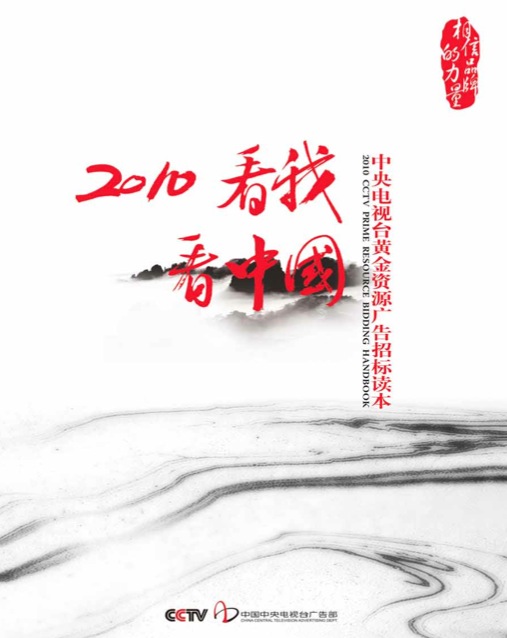 相信品牌
的力量
2010 看我
看中國
中央电视台黄金资源广告招标读本
2010 CCTV PRIME RESOURCE BIDDING HANDBOOK
CCTV
中国中央电视台广告部
CHINA CENTRAL TELEVISION ADVERTISING DEPT.